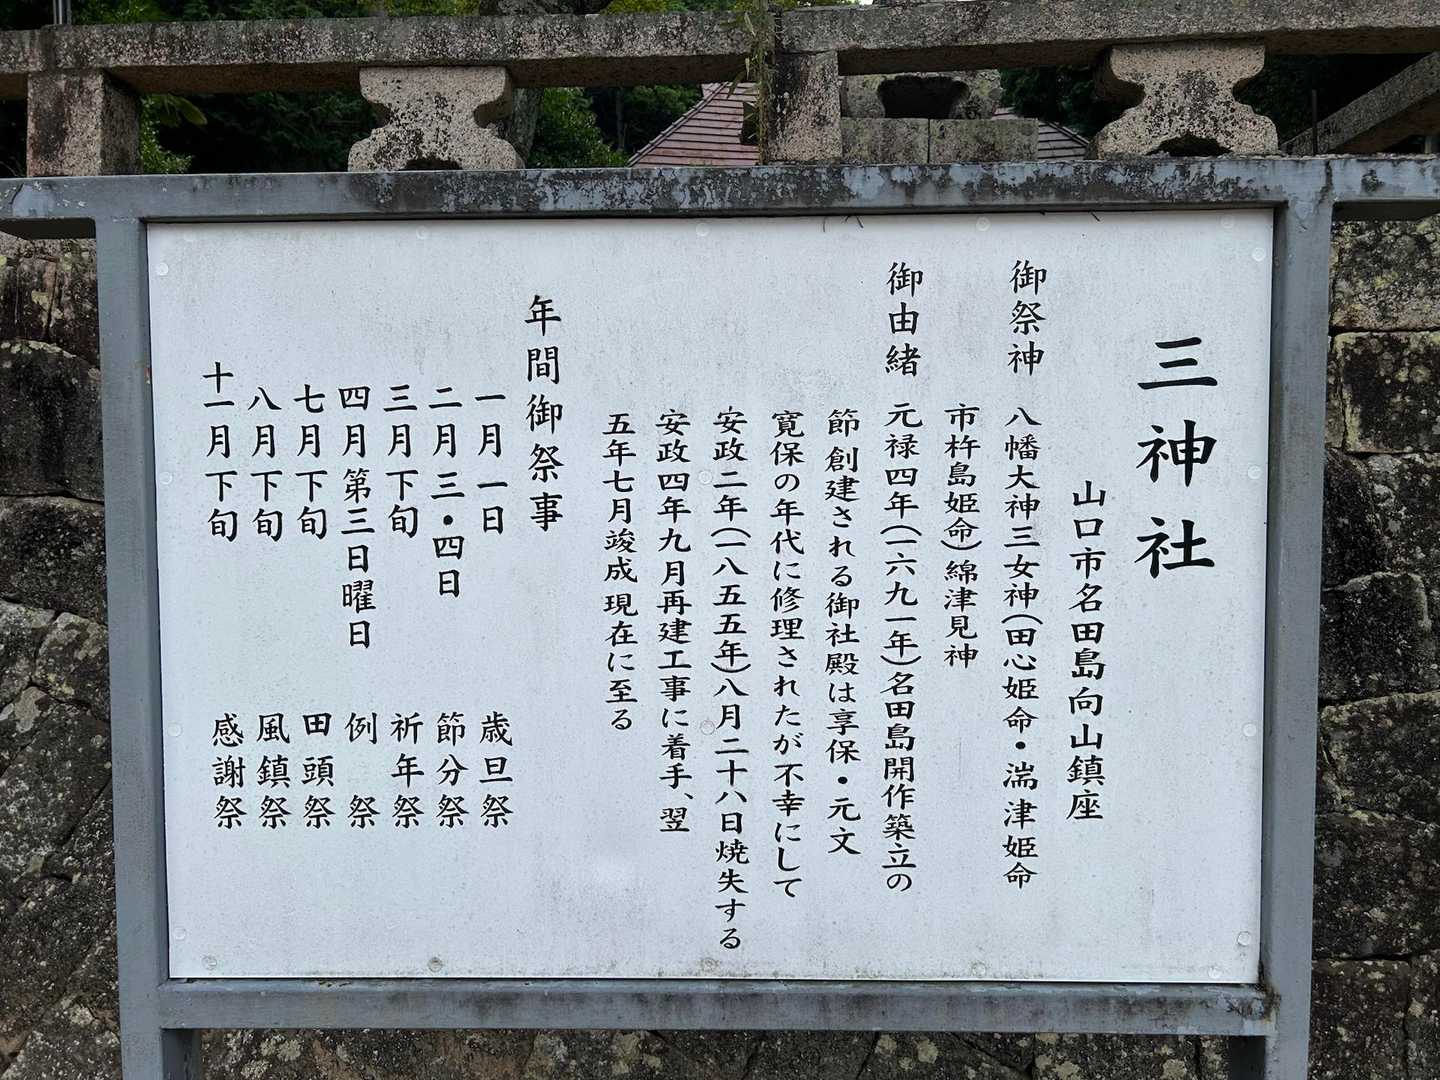 三神社
山口市名田島向山鎮座
御祭神 八幡大神三女神(田心姫命・湍津姫命
市杵島姫命)綿津見神
御由緒 元禄四年(一六九一年)名田島開作築立の
節創建される御社殿は享保・元文
寛保の年代に修理されたが不幸にして
安政二年(一八五五年)八月二十八日焼失する
安政四年九月再建工事に着手、翌
五年七月竣成現在に至る
年間御祭事
一月一日 歳旦祭
二月三・四日 節分祭
三月下旬 祈年祭
四月第三日曜日 例祭
七月下旬 田頭祭
八月下旬 風鎮祭
十一月下旬 感謝祭